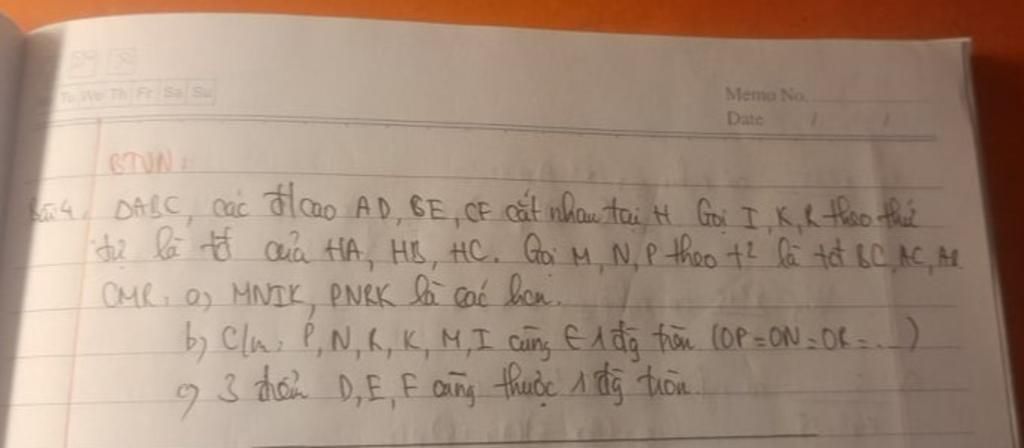 Tu We Th Fr Sa Su
Memo No.
Date / /
BTVN:
Bài 4. ΔABC, các đ/cao AD, BE, CF cắt nhau tại H. Gọi I, K, R theo thứ
tự là tđ của HA, HB, HC. Gọi M, N, P theo t² là tđ BC, AC, AB
CMR, a, MNIK, PNRK là các hcn.
b, C/m, P, N, R, K, M, I cùng ∈ 1 đg tròn (OP = ON = OR = ...)
c, 3 điểm D, E, F cùng thuộc 1 đg tròn.